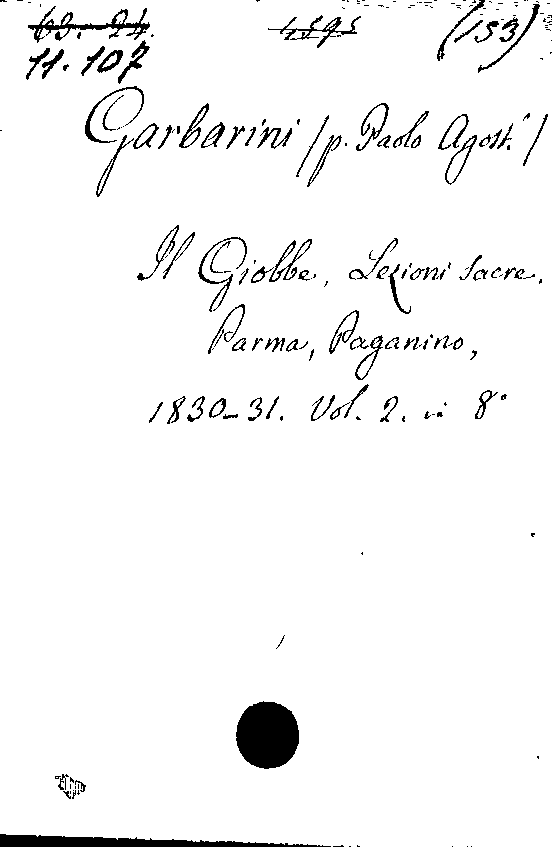 63. 24. 4595 (153)
11. 107
Garbarini /p. Paolo Agost./
Il Giobbe, Lezioni sacre.
Parma, Paganino,
1830-31. Vol. 2. in 8°